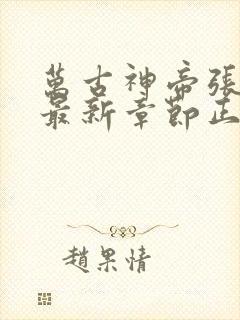 萬古神帝張
最新章節正
趙果情